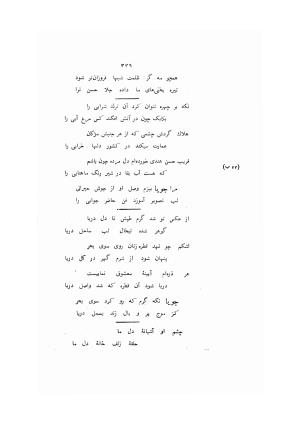 ۳۳۹
همچو مه گر ظلمت شبها فروزان‌تر شود
تیره بختی‌های ما داده جلا حسن ترا
نگه بر چهره نتوان کرد آن ترک شرابی را
که مرغ آبی را
هلاک گردش چشمی که از هر جنبش مژگان
عمارت میکند در کشور دلها خرابی را
فریب حسن هندی خورده‌ام دل مرده چون باشم
که هست آب بقا در شیر رنگ ماهتابی را
(۲۲ ب)
مرا جویا ببزم وصل او از جوش حیرانی
لب تصویر آموزد فن حاضر جوابی را
از عکس تو شد گرم طپش تا دل دریا
گوهر شده تبخال لب ساحل دریا
اشکم چو شود قطره زنان روی سوی بحر
پنهان شود از شرم گهر در گل دریا
هر قدم آیینهٔ معشوق نماییست
دریا شود آن قطره که شد واصل دریا
جویا نگه گرم که رو کرد سوی بحر
کز موج پر و بال زند بسمل دریا
چشم او آشیانهٔ دل ما
حلقهٔ زلف خانهٔ دل ما